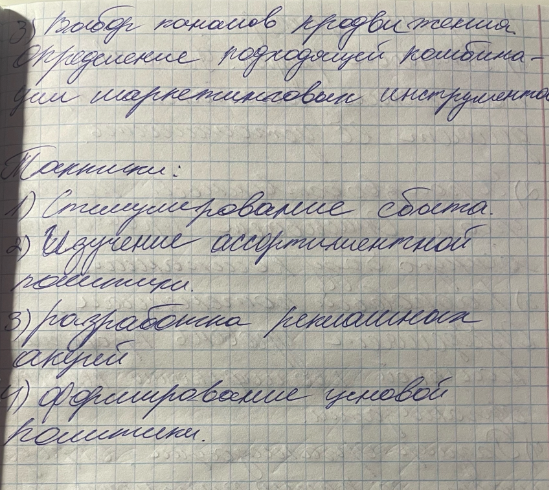 3) Выбор каналов продвижения
определение подходящей комбина-
ции маркетинговых инструментов
Тактики:
1) Стимулирование сбыта.
2) Изучение ассортиментной
политики.
3) разработка рекламных
акций
4) формирование ценовой
политики.